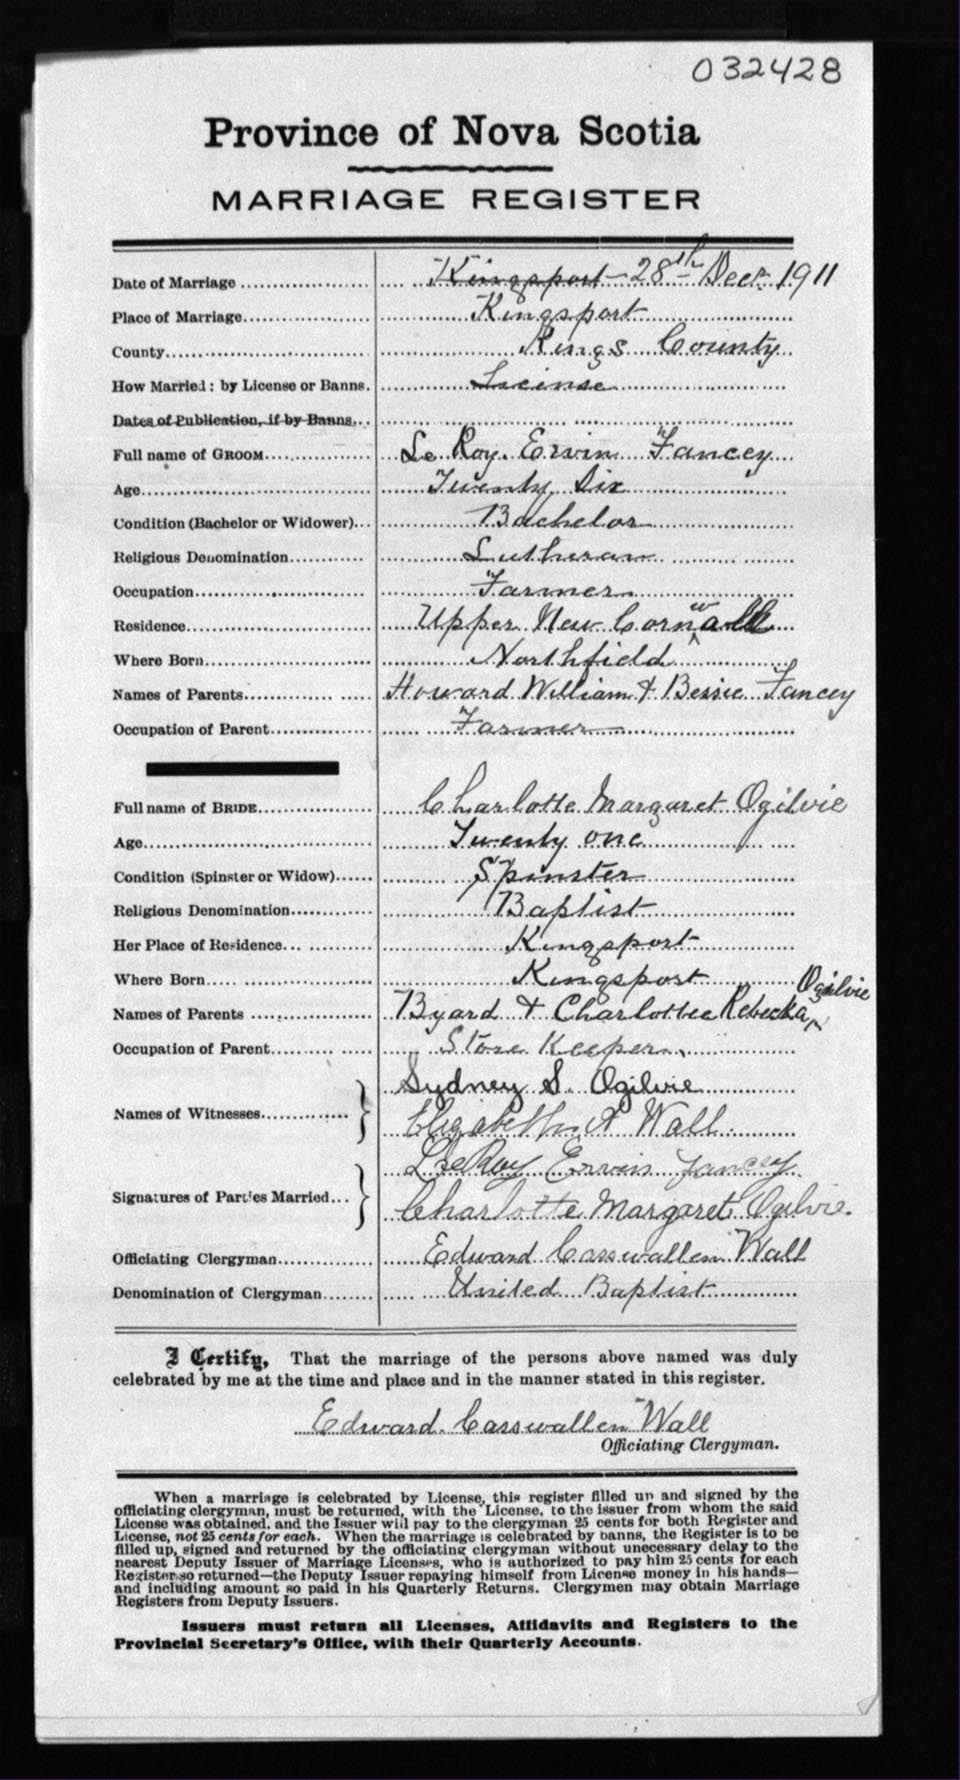 032428
Province of Nova Scotia
MARRIAGE REGISTER
Date of Marriage Kingsport 28th Decr 1911
Place of Marriage Kingsport
County Kings County
How Married: by License or Banns. License
Dates of Publication, if by Banns
Full name of GROOM Le Roy Ervin Fancey
Age Twenty Six
Condition (Bachelor or Widower) Bachelor
Religious Denomination Lutheran
Occupation Farmer
Residence Upper New Cornwall
Where Born Northfield
Names of Parents Howard William & Bessie Fancey
Occupation of Parent Farmer
Full name of BRIDE Charlotte Margaret Ogilvie
Age Twenty one
Condition (Spinster or Widow) Spinster
Religious Denomination Baptist
Her Place of Residence Kingsport
Where Born Kingsport
Names of Parents Byard & Charlottee Rebecka Ogilvie
Occupation of Parent Store Keeper
Names of Witnesses Sydney S. Ogilvie
Elizabeth A Wall
Signatures of Parties Married LeRoy Ervin Fancey
Charlotte Margaret Ogilvie.
Officiating Clergyman Edward Casswallen Wall
Denomination of Clergyman United Baptist
I Certify, That the marriage of the persons above named was duly
celebrated by me at the time and place and in the manner stated in this register.
Edward Casswallen Wall
Officiating Clergyman.
When a marriage is celebrated by License, this register filled up and signed by the
officiating clergyman, must be returned, with the License, to the issuer from whom the said
License was obtained, and the Issuer will pay to the clergyman 25 cents for both Register and
License, not 25 cents for each. When the marriage is celebrated by banns, the Register is to be
filled up, signed and returned by the officiating clergyman without unecessary delay to the
nearest Deputy Issuer of Marriage Licenses, who is authorized to pay him 25 cents for each
Register so returned—the Deputy Issuer repaying himself from License money in his hands—
and including amount so paid in his Quarterly Returns. Clergymen may obtain Marriage
Registers from Deputy Issuers.
Issuers must return all Licenses, Affidavits and Registers to the
Provincial Secretary's Office, with their Quarterly Accounts.